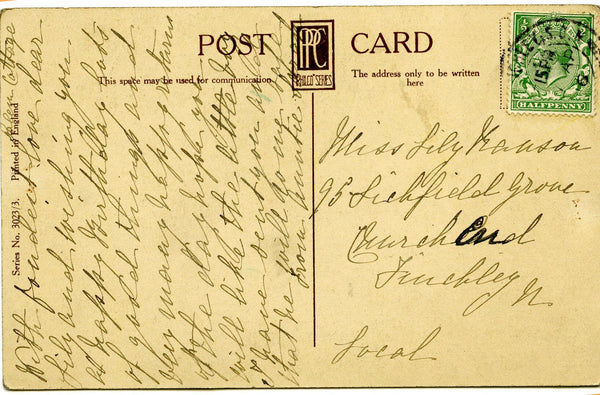 POST CARD
PPC
PHILCO SERIES
This space may be used for communication.
The address only to be written
here
HALFPENNY
Series No. 3023/3. Printed in England
With fondest love dear
Lily and wishing you
a happy birthday lots
of good things and
very many happy returns
of the day hope you
will like the little
I have sent you
that he will come
from Auntie
Miss Lily Ranson
95 Lichfield Grove
Church End
Finchley
N
Local